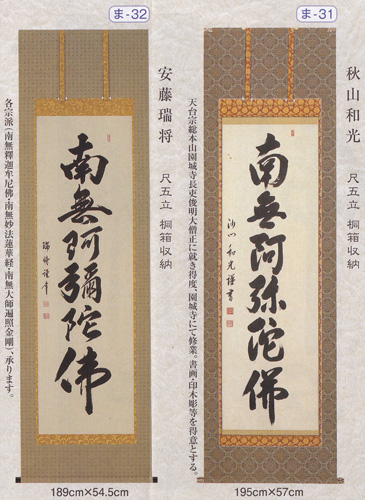 ま-31
秋山和光
尺五立 桐箱収納
南無阿弥陀佛
沙門 和光謹書
天台宗総本山園城寺長吏俊明大僧正に就き得度、園城寺にて修業。書画・印木彫等を得意とする。
195cm×57cm
ま-32
安藤瑞将
尺五立 桐箱収納
南無阿彌陀佛
瑞将謹筆
各宗派(南無釋迦牟尼佛・南無妙法蓮華経・南無大師遍照金剛)、承ります。
189cm×54.5cm